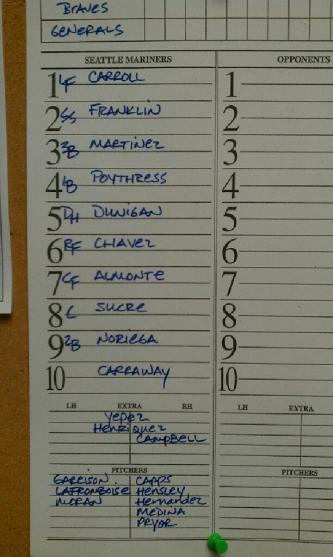 BRAVES
GENERALS
SEATTLE MARINERS OPPONENTS
1 LF CARROLL 1
2 SS FRANKLIN 2
3 3B MARTINEZ 3
4 1B POYTHRESS 4
5 DH DUNIGAN 5
6 RF CHAVEZ 6
7 CF ALMONTE 7
8 C SUCRE 8
9 2B NORIEGA 9
10 CARRAWAY 10
LH EXTRA RH LH EXTRA
YEPEZ
HENRIQUEZ
CAMPBELL
PITCHERS PITCHERS
GARRISON CAPPS
LAFROMBOISE HENSLEY
MORAN HERNANDEZ
MEDINA
PRYOR